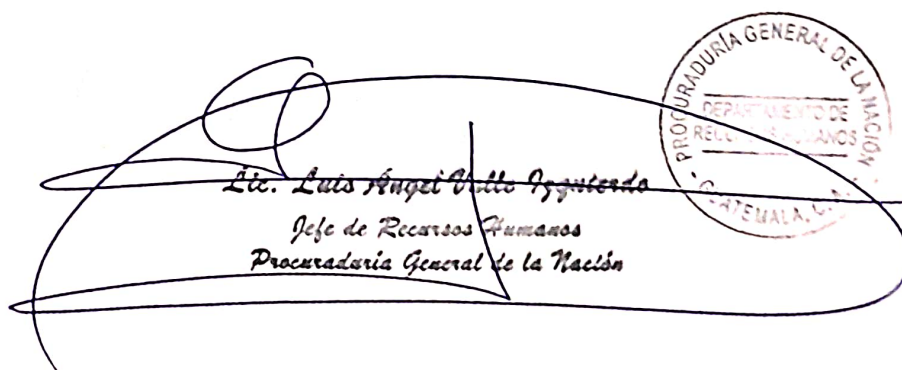 PROCURADURÍA GENERAL DE LA NACIÓN
DEPARTAMENTO DE
RECURSOS HUMANOS
GUATEMALA, C. A.
Lic. Luis Ángel Valle Izquierdo
Jefe de Recursos Humanos
Procuraduría General de la Nación